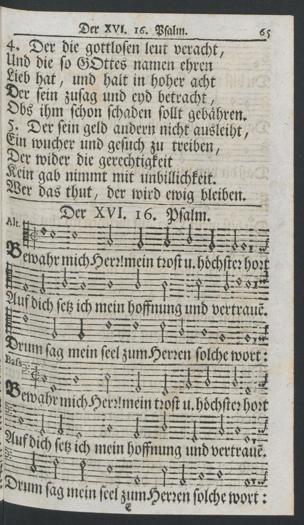 Der XVI. 16. Psalm. 65
4. Der die gottlosen leut veracht,
Und die so GOttes namen ehren
Lieb hat, und halt in hoher acht
Der sein zusag und eyd betracht,
Obs ihm schon schaden sollt gebähren.
5. Der sein geld andern nicht ausleiht,
Ein wucher und gesuch zu treiben,
Der wider die gerechtigkeit
Kein gab nimmt mit unbillichkeit.
Wer das thut, der wird ewig bleiben.
Der XVI. 16. Psalm.
Alt.
Bewahr mich Herr! mein trost u. höchster hort
Auf dich setz ich mein hoffnung und vertraue.
Drum sag mein seel zum Herren solche wort:
Bass.
Bewahr mich Herr! mein trost u. höchster hort
Auf dich setz ich mein hoffnung und vertraue.
Drum sag mein seel zum Herren solche wort: